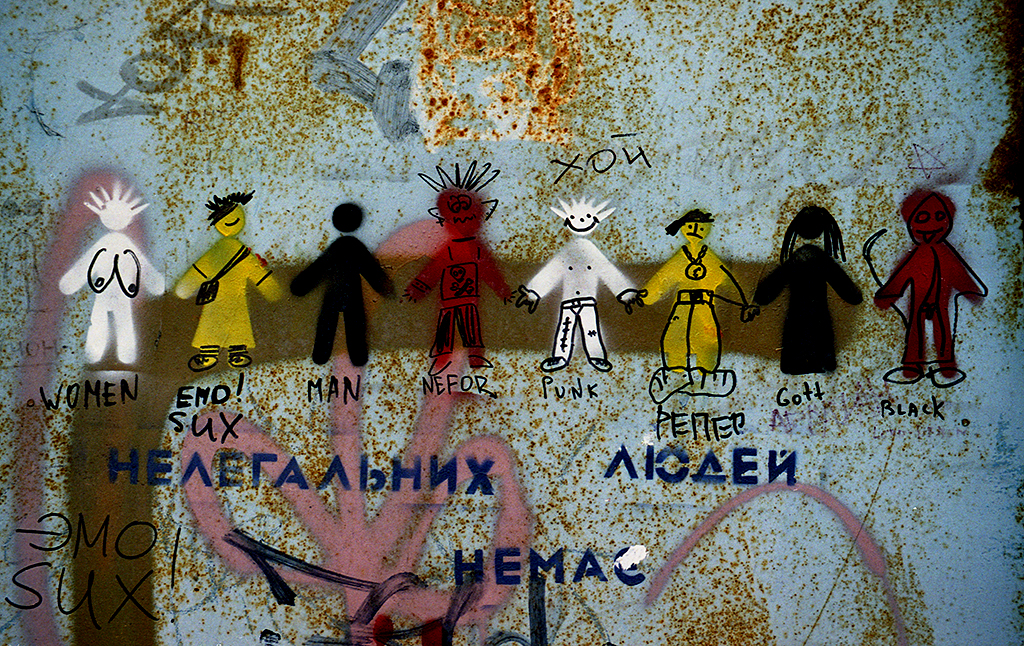 ХОЙ
WOMEN
EMO!
SUX
MAN
NEFOR
PUNK
РЕПЕР
GOTT
BLACK
НЕЛЕГАЛЬНИХ ЛЮДЕЙ
НЕМАЄ
ЭМО!
SUX!